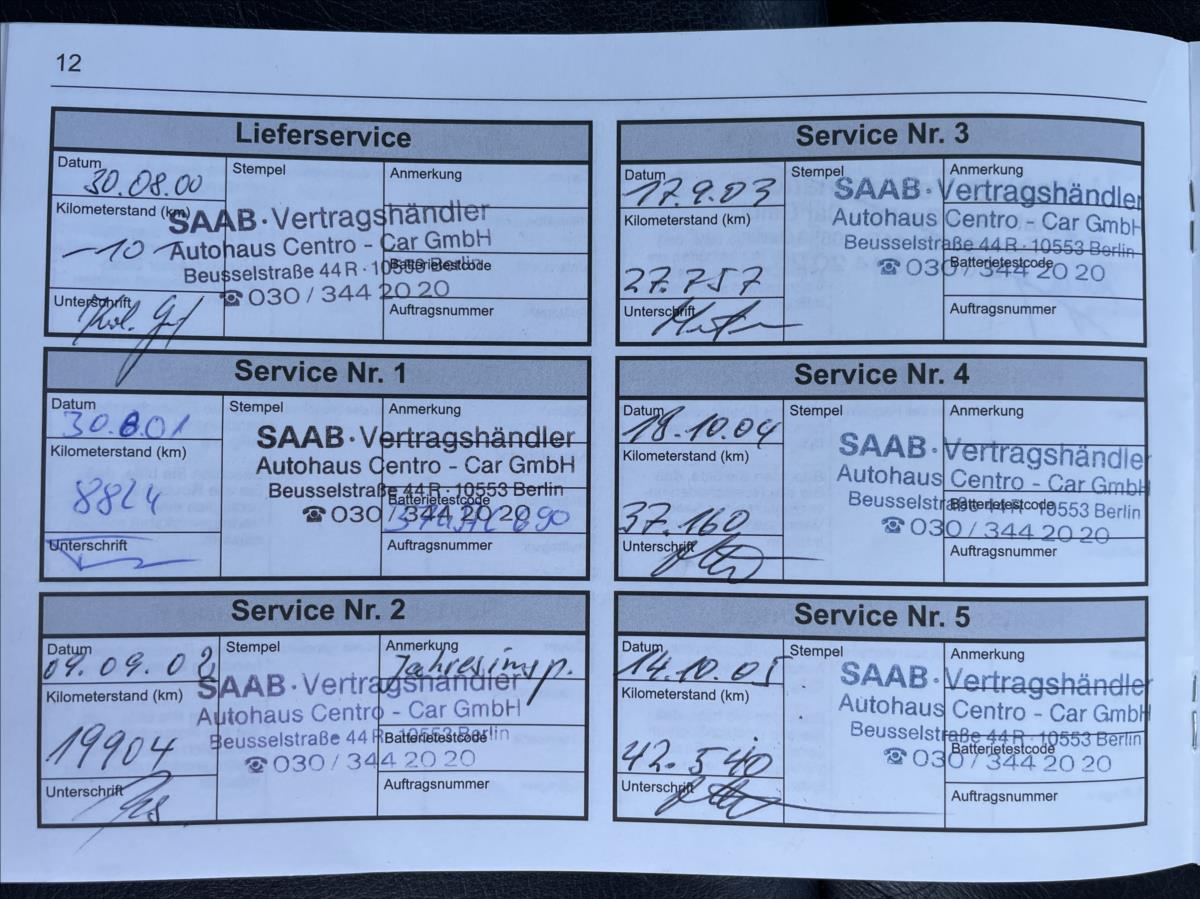 12
Lieferservice
Datum
30.08.00
Stempel
Anmerkung
Kilometerstand (km)
10
SAAB · Vertragshändler
Autohaus Centro - Car GmbH
Beusselstraße 44 R · 10553 Berlin
Batterietestcode
☎ 030 / 344 20 20
Unterschrift
Auftragsnummer
Service Nr. 1
Datum
30.8.01
Stempel
Anmerkung
Kilometerstand (km)
8824
SAAB · Vertragshändler
Autohaus Centro - Car GmbH
Beusselstraße 44 R · 10553 Berlin
Batterietestcode
☎ 030 / 344 20 20
Unterschrift
Auftragsnummer
Service Nr. 2
Datum
09.09.02
Stempel
Anmerkung
Jahresinsp.
Kilometerstand (km)
19904
SAAB · Vertragshändler
Autohaus Centro - Car GmbH
Beusselstraße 44 R · 10553 Berlin
Batterietestcode
☎ 030 / 344 20 20
Unterschrift
Auftragsnummer
Service Nr. 3
Datum
17.9.03
Stempel
Anmerkung
Kilometerstand (km)
27.757
SAAB · Vertragshändler
Autohaus Centro - Car GmbH
Beusselstraße 44 R · 10553 Berlin
Batterietestcode
☎ 030 / 344 20 20
Unterschrift
Auftragsnummer
Service Nr. 4
Datum
18.10.04
Stempel
Anmerkung
Kilometerstand (km)
37.160
SAAB · Vertragshändler
Autohaus Centro - Car GmbH
Beusselstraße 44 R · 10553 Berlin
Batterietestcode
☎ 030 / 344 20 20
Unterschrift
Auftragsnummer
Service Nr. 5
Datum
14.10.05
Stempel
Anmerkung
Kilometerstand (km)
42.540
SAAB · Vertragshändler
Autohaus Centro - Car GmbH
Beusselstraße 44 R · 10553 Berlin
Batterietestcode
☎ 030 / 344 20 20
Unterschrift
Auftragsnummer